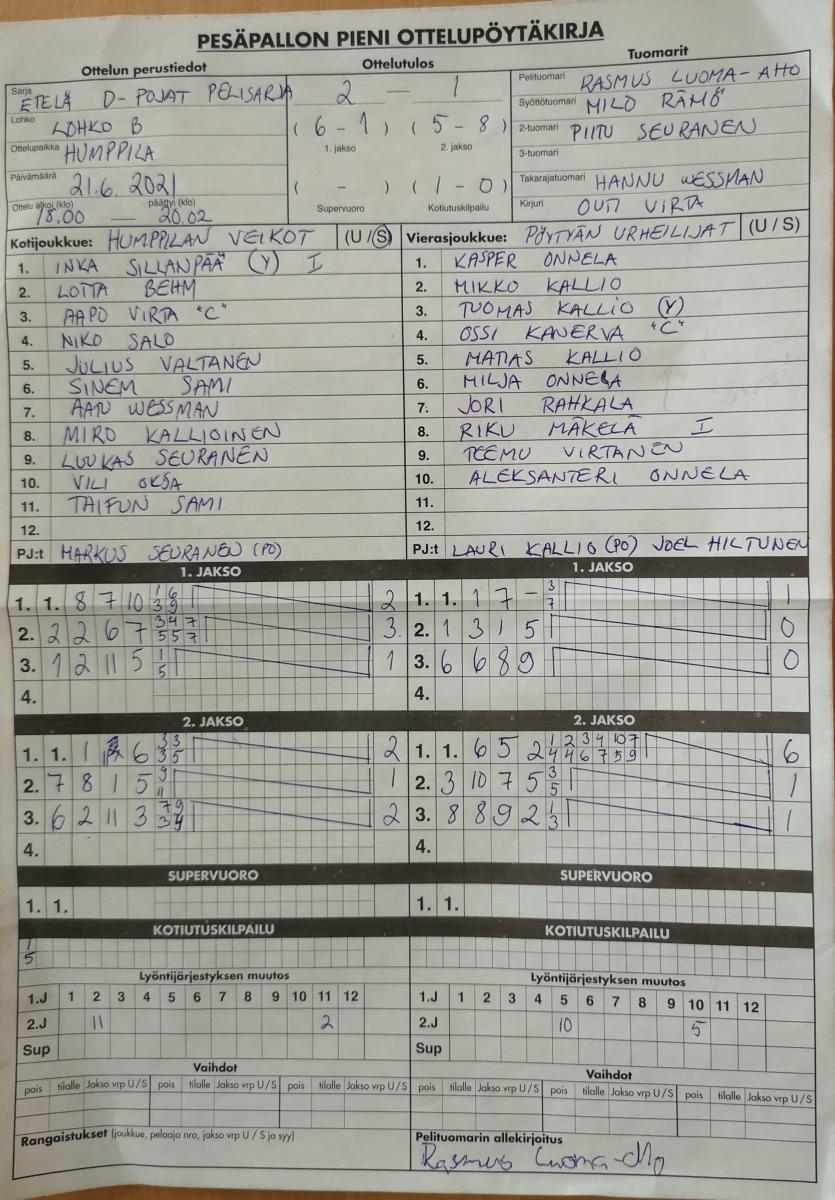 PESÄPALLON PIENI OTTELUPÖYTÄKIRJA
Ottelun perustiedot
Ottelutulos
Tuomarit
Sarja ETELÄ D-POJAT PELISARJA
Lohko LOHKO B
Ottelupaikka HUMPPILA
Päivämäärä 21.6.2021
Ottelu alkoi (klo) 18.00 — päättyi (klo) 20.02
2 — 1
(6-1) (5-8)
1. jakso 2. jakso
( - ) (1-0)
Supervuoro Kotiutuskilpailu
Pelituomari RASMUS LUOMA-AHO
Syöttötuomari MILO RÄMÖ
2-tuomari PIITU SEURANEN
3-tuomari
Takarajatuomari HANNU WESSMAN
Kirjuri OUTI VIRTA
Kotijoukkue: HUMPPILAN VEIKOT (U/S)
1. INKA SILLANPÄÄ (Y) I
2. LOTTA BEHM
3. AAPO VIRTA "C"
4. NIKO SALO
5. JULIUS VALTANEN
6. SINEM SAMI
7. AATU WESSMAN
8. MIRO KALLIOINEN
9. LUUKAS SEURANEN
10. VILI OKSA
11. TAIFUN SAMI
12.
PJ:t MARKUS SEURANEN (PO)
Vierasjoukkue: PÖYTYÄN URHEILIJAT (U/S)
1. KASPER ONNELA
2. MIKKO KALLIO
3. TUOMAS KALLIO (Y)
4. OSSI KANERVA "C"
5. MATIAS KALLIO
6. MILJA ONNELA
7. JORI RAHKALA
8. RIKU MÄKELÄ I
9. TEEMU VIRTANEN
10. ALEKSANTERI ONNELA
11.
12.
PJ:t LAURI KALLIO (PO) JOEL HILTUNEN
1. JAKSO
1. 1. 8 7 10 1/3 6/9 2
2. 2 2 6 7 3/5 4/5 7/7 3
3. 1 2 11 5 1/5 1
4.
1. JAKSO
1. 1. 1 7 - 3/7 1
2. 1 3 1 5 0
3. 6 6 8 9 0
4.
2. JAKSO
1. 1. 1 6 3/3 3/5 2
2. 7 8 1 5 9/11 1
3. 6 2 11 3 7/3 9/9 2
4.
2. JAKSO
1. 1. 6 5 2 1/4 2/4 3/6 4/7 10/5 7/9 6
2. 3 10 7 5 3/5 1
3. 8 8 9 2 1/3 1
4.
SUPERVUORO
1. 1.
SUPERVUORO
1. 1.
KOTIUTUSKILPAILU
1/5
KOTIUTUSKILPAILU
Lyöntijärjestyksen muutos
1.J 1 2 3 4 5 6 7 8 9 10 11 12
2.J 11 2
Sup
Lyöntijärjestyksen muutos
1.J 1 2 3 4 5 6 7 8 9 10 11 12
2.J 10 5
Sup
Vaihdot
pois tilalle Jakso vrp U/S pois tilalle Jakso vrp U/S pois tilalle Jakso vrp U/S
Vaihdot
pois tilalle Jakso vrp U/S pois tilalle Jakso vrp U/S pois tilalle Jakso vrp U/S
Rangaistukset (joukkue, pelaaja nro, jakso vrp U / S ja syy)
Pelituomarin allekirjoitus
Rasmus Luoma-Aho